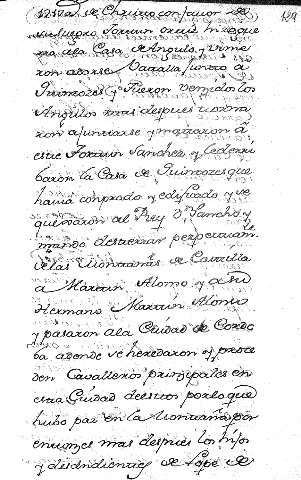 de Chquito con favor de
su suegro Fortun Ortiz
ra a la Casa de Angulo, y vinie
ron a darse Vatalla junto a
Quintozes y fueron venzidos los
Angulos mas despues torna
ron a juntarse y mataron a
este Fortun Sanchez y le derri
baron la Casa de Quintozes que
havia comprado y edificado y se
quexaron al Rey Dn. Sancho y
mando desterrar perpetuamte.
de las Montañas de Castilla
a Martin Alonso y a su
Hermano Martin Alonso
y pasaron a la Ciudad de Cordo
ba adonde se heredaron y proce
den Cavalleros principales en
esta Ciudad de estos por lo que
hubo paz en la Montaña por
entonzes mas despues los hijos
y desendientes de Lope de